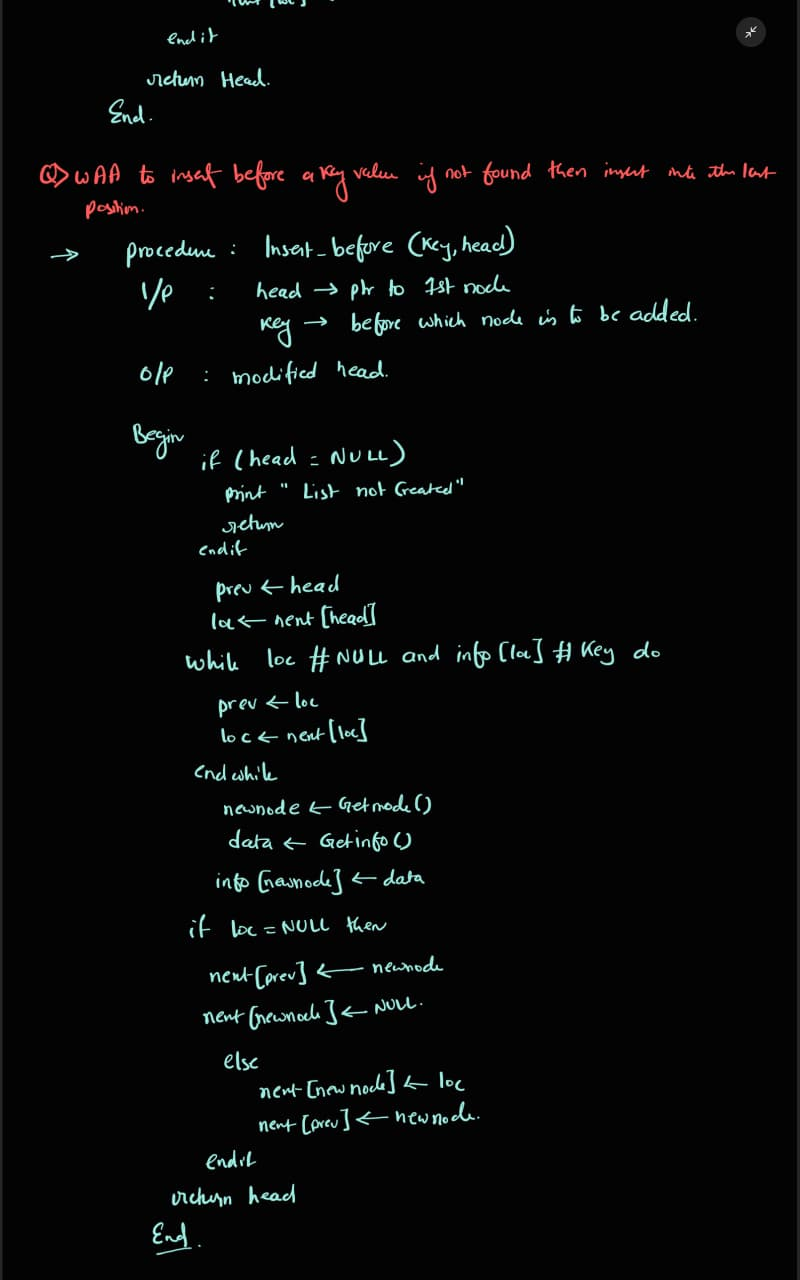 endif
return Head.
End.
Q> WAA to insert before a key value if not found then insert into the last
position.
→ procedure : Insert_before (Key, head)
I/P : head → ptr to 1st node
key → before which node is to be added.
O/P : modified head.
Begin
if (head = NULL)
print " List not Created"
return
endif
prev ← head
loc ← next [head]
while loc # NULL and info [loc] # Key do
prev ← loc
loc ← next [loc]
End while
newnode ← Getnode ()
data ← Getinfo ()
info [newnode] ← data
if loc = NULL then
next [prev] ← newnode
next [newnode] ← NULL.
else
next [new node] ← loc
next [prev] ← newnode.
endif
return head
End.